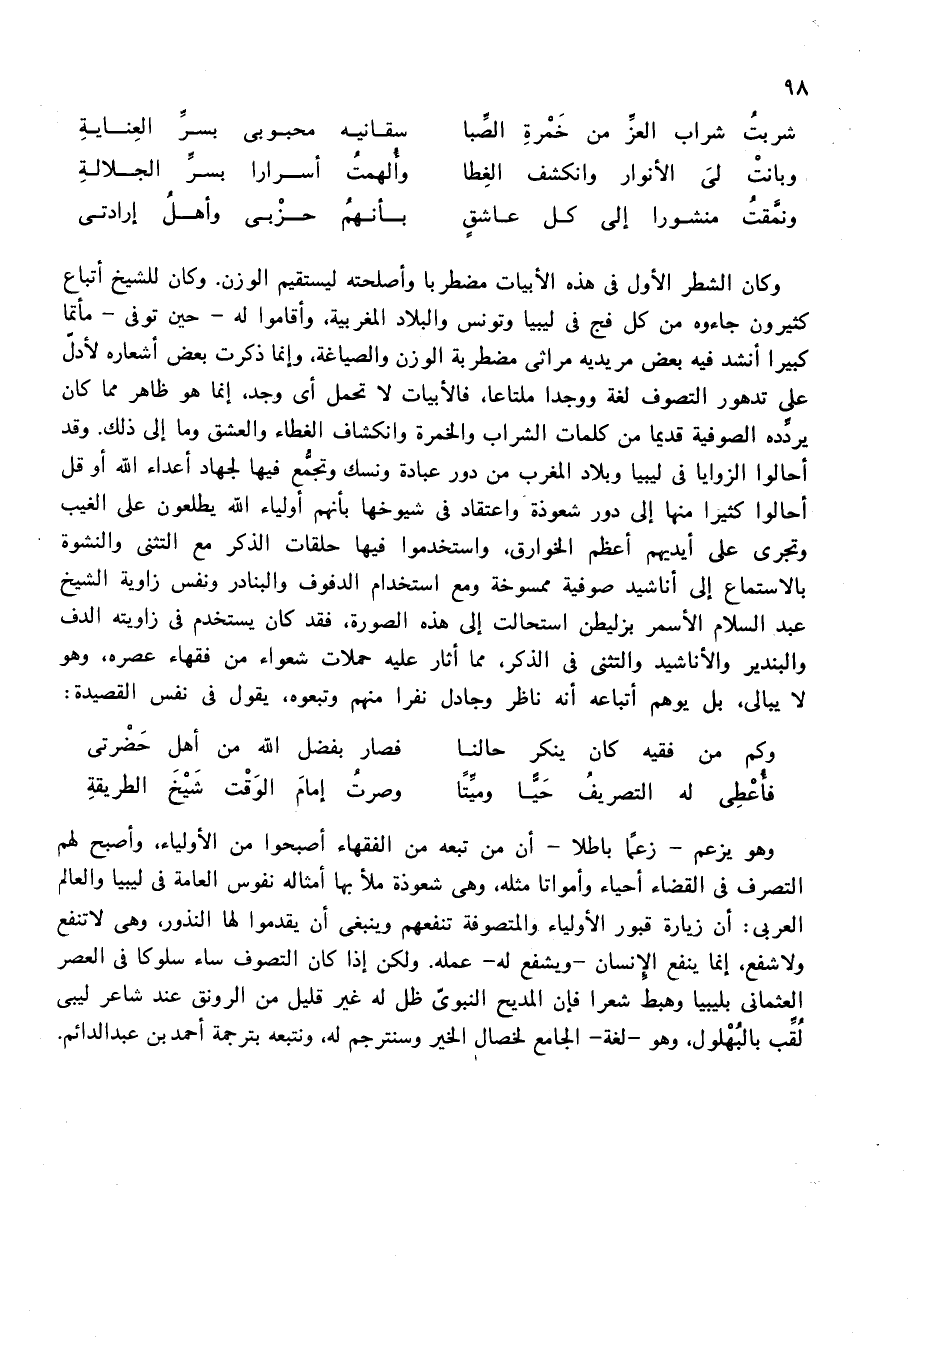 ٩٨
شربتُ شراب العزِّ من خَمْرةِ الصِّبا سقانيه محبوبى بسرِّ العِنايةِ
وبانتْ لىَ الأنوار وانكشف الغِطا وأُلهمتُ أسرارا بسرِّ الجلالةِ
ونمَّقتُ منشورا إلى كل عاشقٍ بأنهمُ حزْبى وأهلُ إرادتى
وكان الشطر الأول فى هذه الأبيات مضطربا وأصلحته ليستقيم الوزن. وكان للشيخ أتباع
كثيرون جاءوه من كل فج فى ليبيا وتونس والبلاد المغربية، وأقاموا له - حين توفى - مأتما
كبيرا أنشد فيه بعض مريديه مراثى مضطربة الوزن والصياغة، وإنما ذكرت بعض أشعاره لأدلّ
على تدهور التصوف لغة ووجدا ملتاعا، فالأبيات لا تحمل أى وجد، إنما هو ظاهر مما كان
يردِّده الصوفية قديما من كلمات الشراب والخمرة وانكشاف الغطاء والعشق وما إلى ذلك. وقد
أحالوا الزوايا فى ليبيا وبلاد المغرب من دور عبادة ونسك وتجمُّع فيها لجهاد أعداء الله أو قل
أحالوا كثيرا منها إلى دور شعوذة واعتقاد فى شيوخها بأنهم أولياء الله يطلعون على الغيب
وتجرى على أيديهم أعظم الخوارق، واستخدموا فيها حلقات الذكر مع التثنى والنشوة
بالاستماع إلى أناشيد صوفية ممسوخة ومع استخدام الدفوف والبنادر ونفس زاوية الشيخ
عبد السلام الأسمر بزليطن استحالت إلى هذه الصورة، فقد كان يستخدم فى زاويته الدف
والبندير والأناشيد والتثنى فى الذكر، مما أثار عليه حملات شعواء من فقهاء عصره، وهو
لا يبالى، بل يوهم أتباعه أنه ناظر وجادل نفرا منهم وتبعوه، يقول فى نفس القصيدة:
وكم من فقيه كان ينكر حالنا فصار بفضل الله من أهل حَضْرتى
فأُعْطِى له التصريفُ حَيًّا وميِّتًا وصرتُ إمامَ الوَقْت شَيْخَ الطريقةِ
وهو يزعم - زعمًا باطلا - أن من تبعه من الفقهاء أصبحوا من الأولياء، وأصبح لهم
التصرف فى القضاء أحياء وأمواتا مثله، وهى شعوذة ملأ بها أمثاله نفوس العامة فى ليبيا والعالم
العربى: أن زيارة قبور الأولياء والمتصوفة تنفعهم وينبغى أن يقدموا لها النذور، وهى لاتنفع
ولاشفع، إنما ينفع الإنسان -ويشفع له- عمله. ولكن إذا كان التصوف ساء سلوكا فى العصر
العثمانى بليبيا وهبط شعرا فإن المديح النبوىّ ظل له غير قليل من الرونق عند شاعر ليبى
لُقِّب بالبُهْلول، وهو -لغة- الجامع لخصال الخير وسنترجم له، ونتبعه بترجمة أحمد بن عبدالدائم.